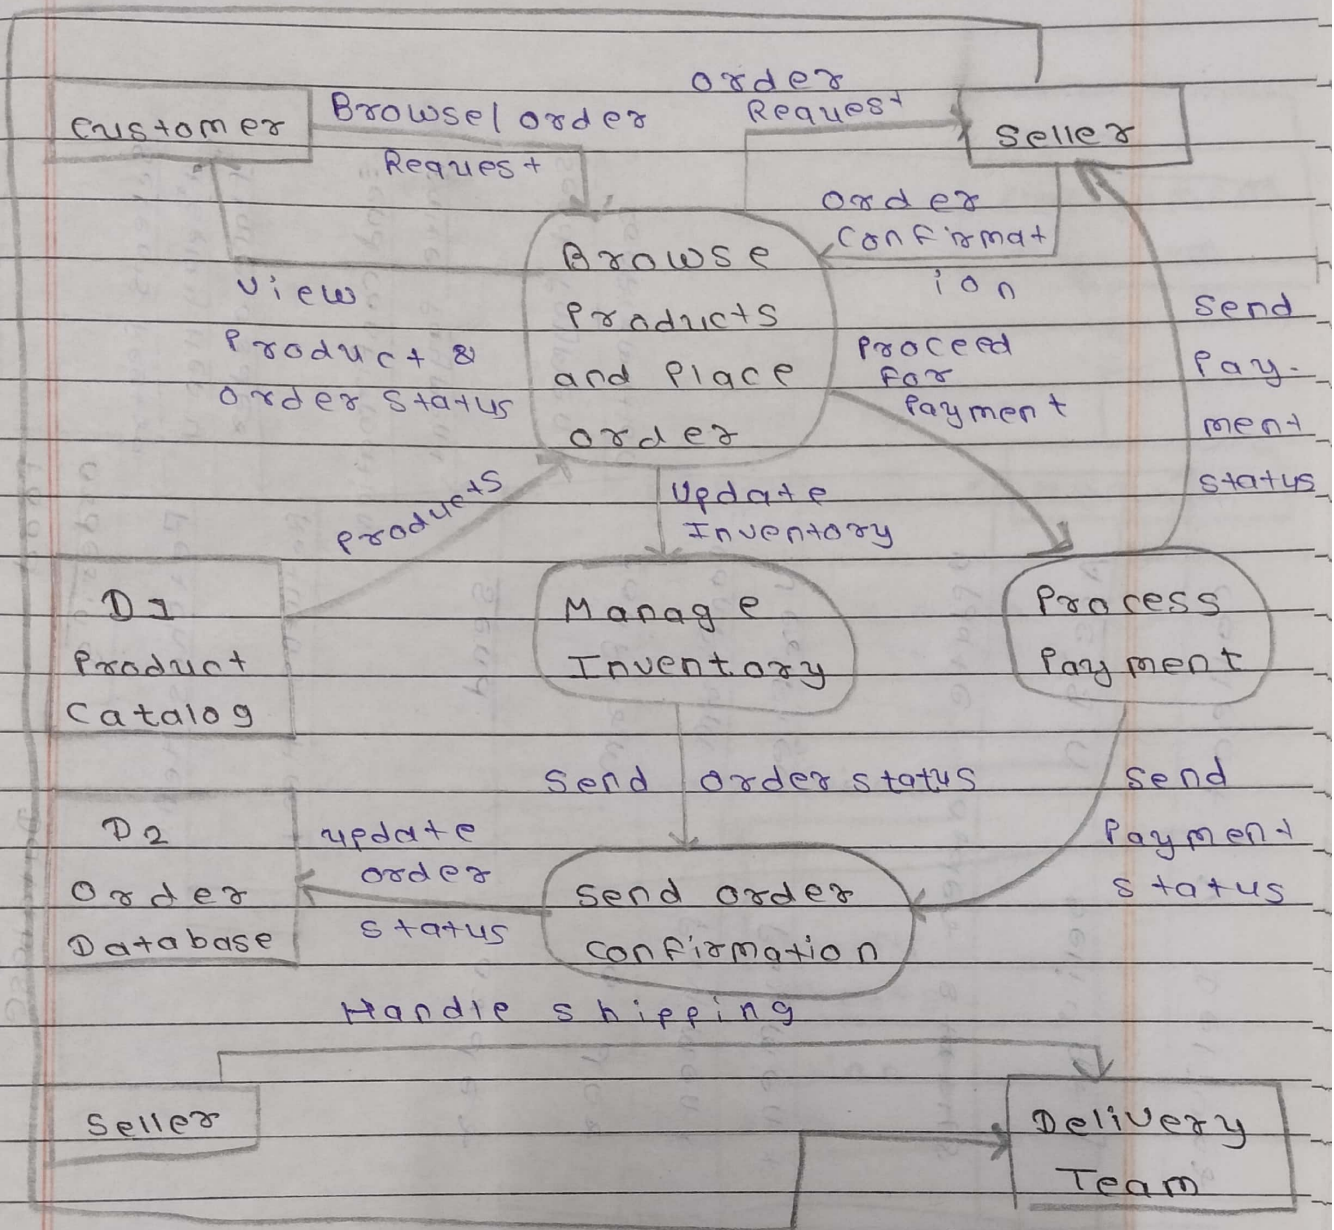 Customer
Browse/order
Request
order
Request
Seller
order
confirmat
ion
Browse
Products
and Place
order
View
Product &
order status
Proceed
For
Payment
Send
Pay-
ment
status
Products
Update
Inventory
D1
Product
Catalog
Manage
Inventory
Process
Payment
Send order status
Send
Payment
status
D2
Order
Database
update
order
status
Send order
confirmation
Handle shipping
Seller
Delivery
Team